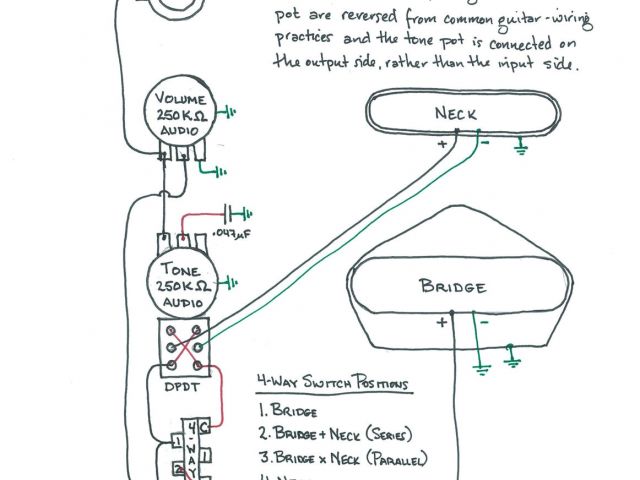 pot are reversed from common guitar-wiring
practices and the tone pot is connected on
the output side, rather than the input side.
VOLUME
250KΩ
AUDIO
NECK
+ -
.047µF
TONE
250KΩ
AUDIO
BRIDGE
+ -
DPDT
4-WAY SWITCH POSITIONS
1. BRIDGE
2. BRIDGE + NECK (SERIES)
3. BRIDGE x NECK (PARALLEL)
4-WAY
C
1
1
2